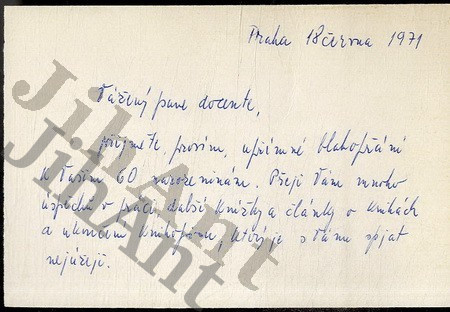 Praha 18 června 1971
Vážený pane docente,
přijměte, prosím, upřímné blahopřání
k Vašim 60 narozeninám. Přeji Vám mnoho
úspěchů v práci další knížky a články o knihách
a ukončení Knihopisu, který je s Vámi spjat
nejúžeji.
JihAnt
JihAnt